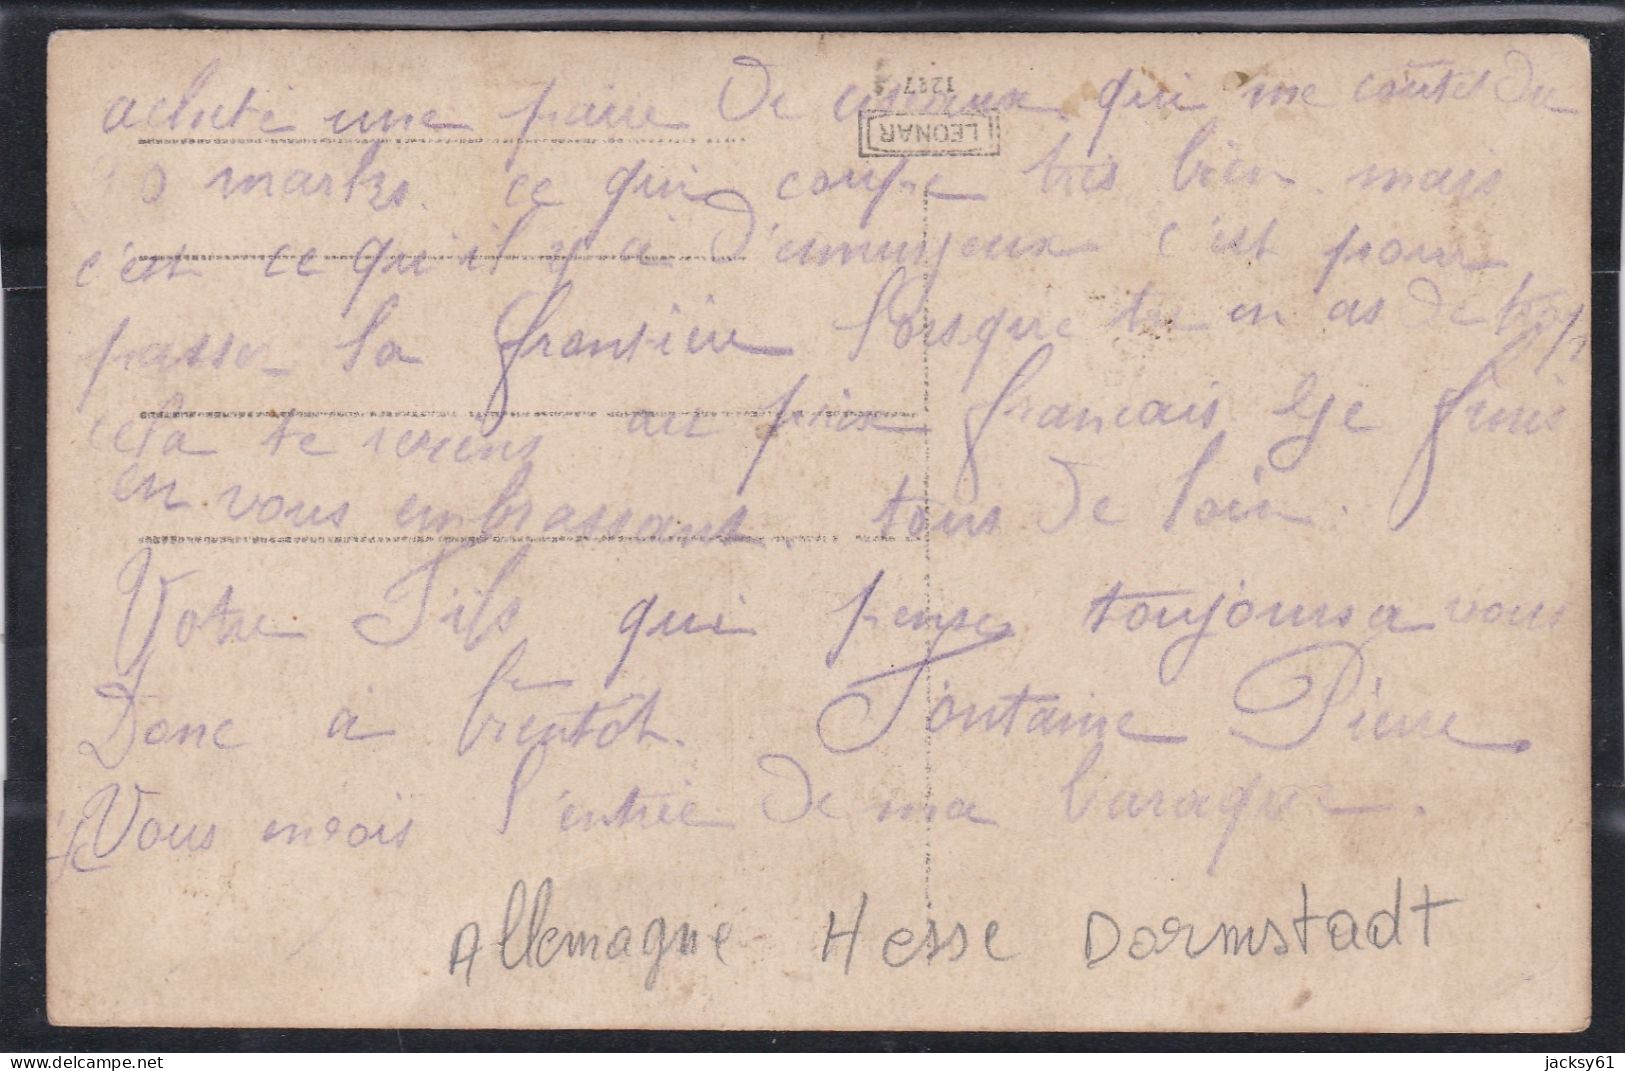 acheté une paire de ciseaux qui me coutet
marks. ce qui coupe tres bien mais
c'est ce qu'il y a d'ennuyeux c'est pour
passer la frontiere lorsque tu en as de trop
cela te reviens au prix francais. Je finis
en vous embrassant tous de loin.
Votre Fils qui pense toujours a vous
Donc à bientot. Fontaine Pierre.
Vous envois l'entrée de ma baraque.
Allemagne Hesse Darmstadt
LEONAR
jacksy61